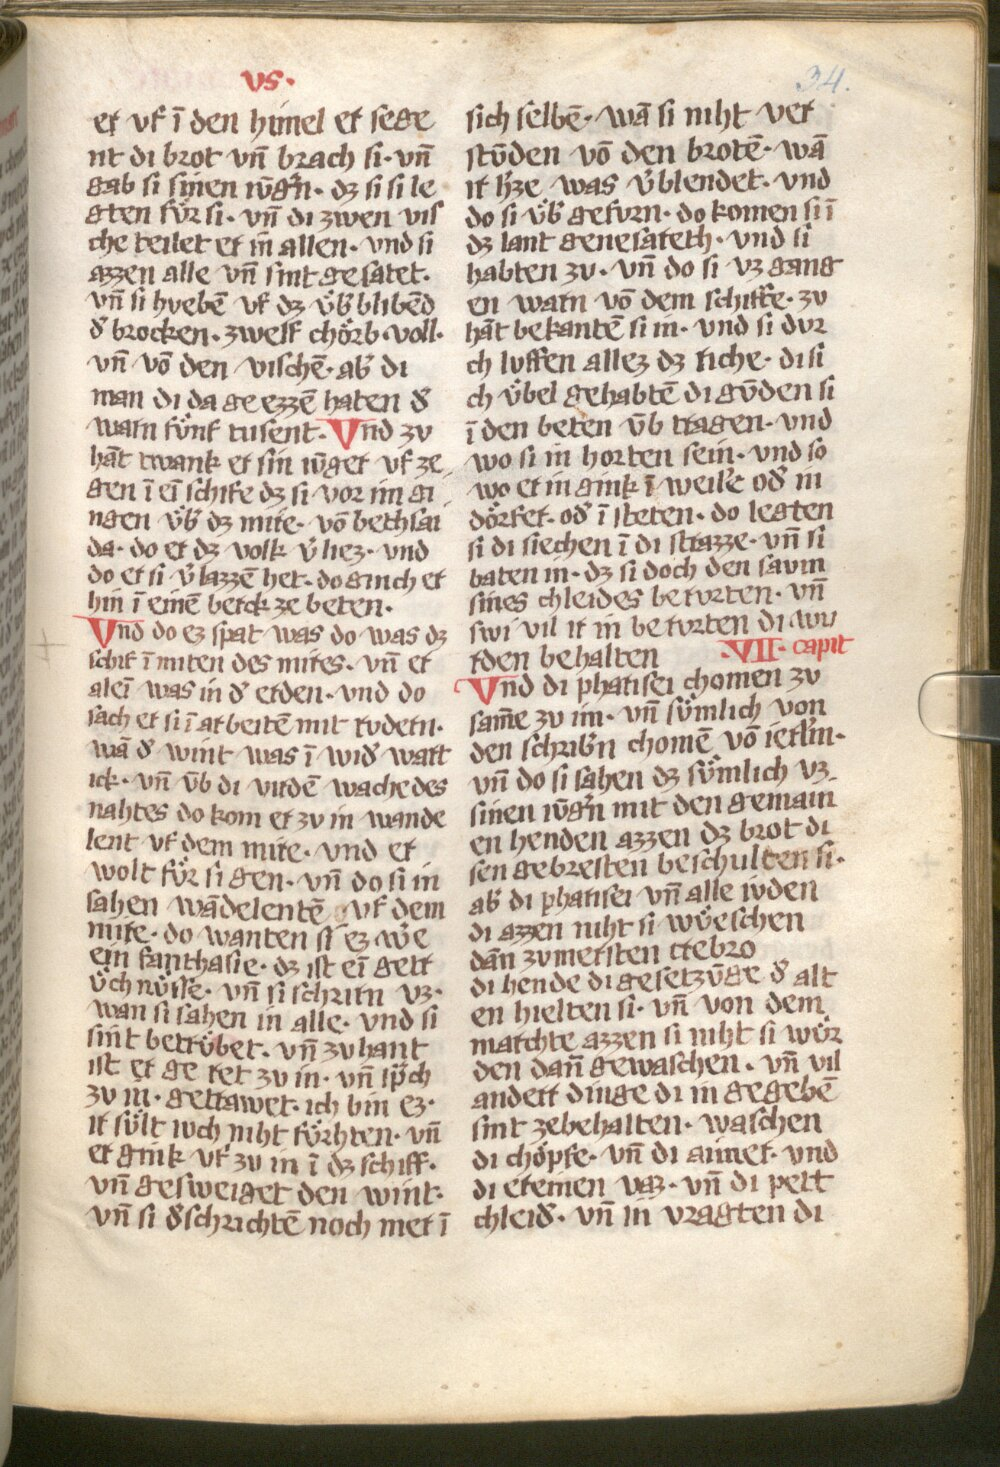 vs·
34.
er vf ī den himel er sege
nt di brot vn̄ brach si· vn̄
gab si sinen iūgˀn· dz si si le
gten fúr si· vn̄ di zwen vis
che teilet er in̄ allen· vnd si
azzen alle vn̄ sint gesatet·
vn̄ si hvebē vf dz vˀbˀ blibēd
dˀ brocken· zwelf chörb· voll·
vn̄ vō den vischē· abˀ di
man di da geezzē haten dˀ
warn fvͤnf tusent· Vnd zv
hāt twank er sin ivͤger vf ze
gen ī eī schife dz si vor im gi
ngen vˀbˀ dz mire· vō bethsai
da· do er dz volk vˀliez· vnd
do er si vˀlazzē het· do ginch er
hin ī einē berck ze beten·
Vnd do ez spat was do was dz
schif ī miten des mires· vn̄ er
aleī was in dˀ erden· vnd do
sach er si ī arbeitē mit rvdern·
wā dˀ wint was ī widˀ wart
ick· vn̄ vm̄b di virdē wache des
nahtes do kom er zv in wande
lent vf dem mire· vnd er
wolt fvͤr si gen· vn̄ do si in
sahen wādelentē vf dem
mire· do wanten si ez wˀe
ein fanthasie· dz ist eī gett
vͤch nvͤsse· vn̄ si schrirn vz·
wan si sahen in alle· vnd si
sint betrvͤbet· vn̄ zv hant
ist er ge ret zv in· vn̄ sp̄ch
zv in· getrawet· ich bin ez·
ir svͤlt ivch niht fvͤrhten· vn̄
er gink vf zv in ī dz schiff·
vn̄ gesweiget den wint·
vn̄ si dˀschrichtē noch mer ī
sich selbē· wā si niht ver
stv̄den vō den brotē· wā
ir hˀze was vˀblendet· vnd
do si vˀbˀ gefvrn· do komen si ī
dz lant genesareth· vnd si
habten zv· vn̄ do si vz gang
en warn vō dem schiffe· zv
hāt bekantē si in· vnd si dvr
ch luffen allez dz riche· di si
ch vͤbel gehabtē di gv̄den si
ī den beten vm̄b tragen· vnd
wo si in horten sein· vnd so
wo er in gink ī weilˀe odˀ in
dörfer· odˀ ī steten· do legten
si di siechen ī di strazze· vn̄ si
baten in· dz si doch den savm
sines chleides berurten· vn̄
swi vil ir in berurten di wu
rden behalten ·VII· capit
Vnd di pharisei chomen zv
sam̄e zv im· vn̄ svͤmlich von
den schribˀn chomē vō ierlˀm·
vn̄ do si sahen dz svͤmlich vz
sinen iv̄gˀn mit den gemain
en henden azzen dz brot di
sen gebresten beschulten si·
abˀ di pharisei vn̄ alle ivden
di azzen niht si wvͤeschen
dān zvmersten crebro
di hende di gesetzv̄ge dˀ alt
en hielten si· vn̄ von dem
marchte azzen si niht si wvͤr
den dan̄ gewaschen· vn̄ vil
anderr dinge di in gegebē
sint zebehalten· waschen
di chöpfe· vn̄ di aimer· vnd
di eremen vaz· vn̄ di pett
chleidˀ· vn̄ in vragten di